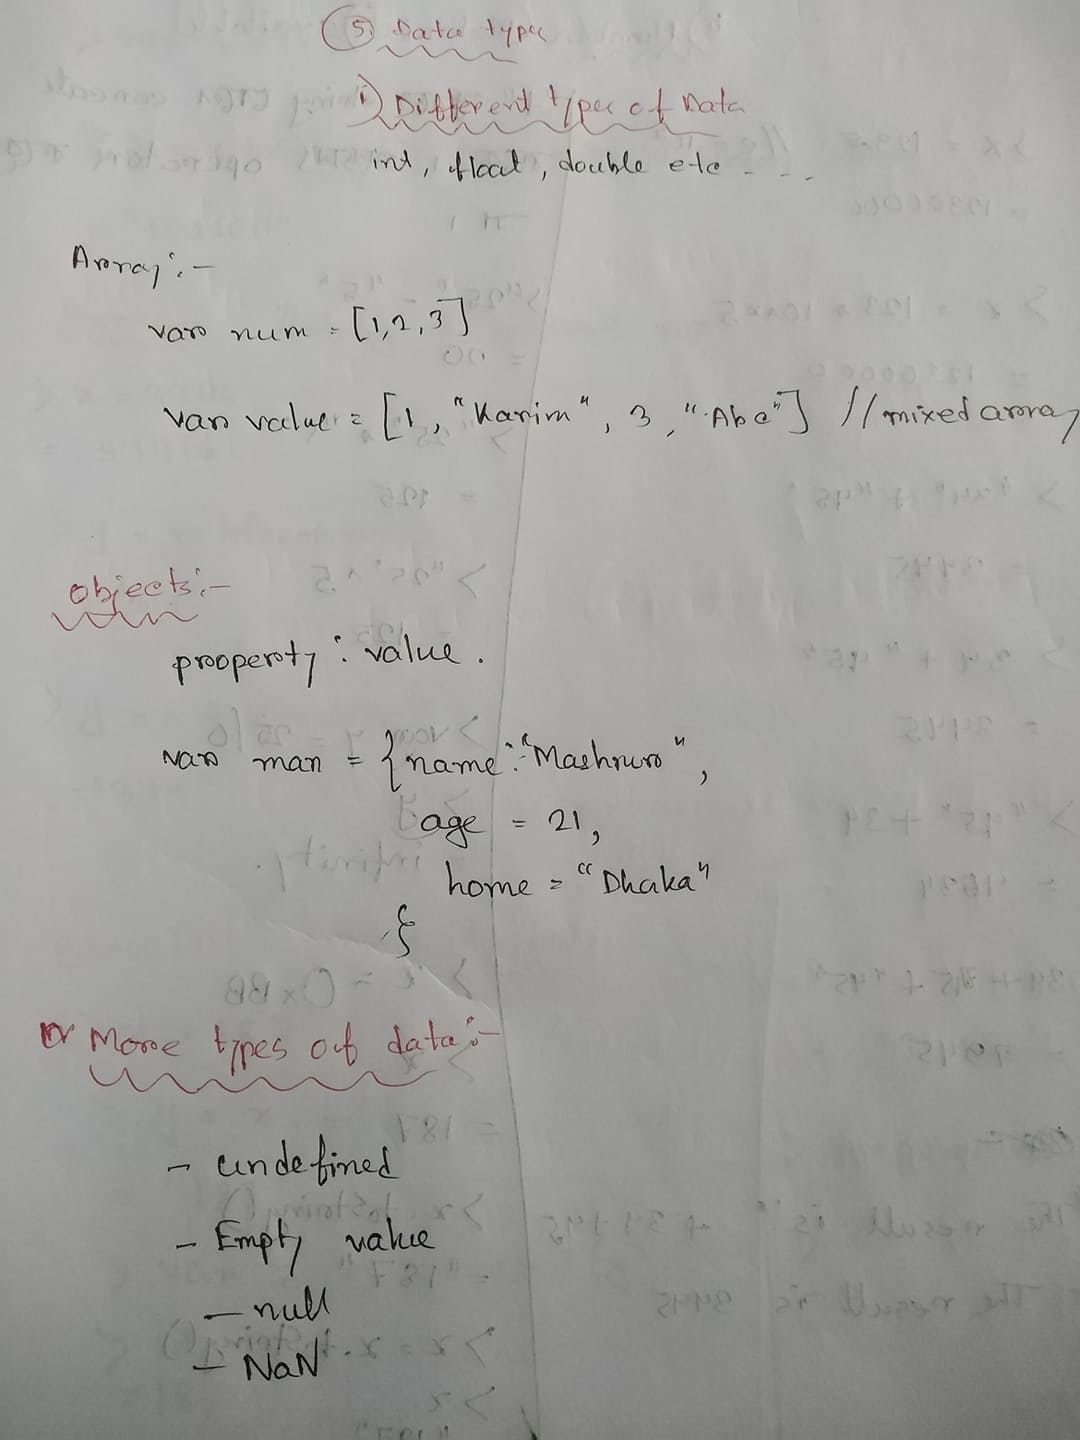 5 Data types
i) Different types of Data
int, float, double etc - - -
Array:-
var num = [1,2,3]
var value = [1, "Karim", 3, "Abc"] // mixed array
Objects:-
property : value.
var man = {name: "Mashrur",
age = 21,
home = "Dhaka"
}
More types of data:-
- undefined
- Empty value
- null
- NaN